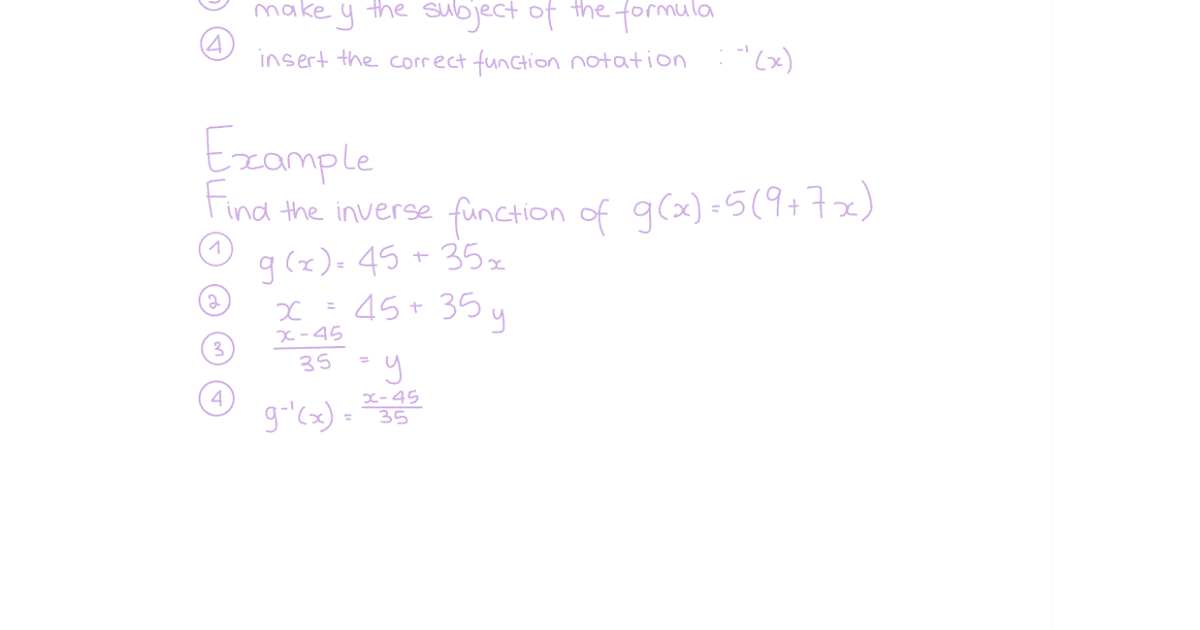 ③ make y the subject of the formula
④ insert the correct function notation : ⁻¹(x)
Example
Find the inverse function of g(x) = 5(9+7x)
① g(x) = 45 + 35x
② x = 45 + 35y
③ x-45/35 = y
④ g⁻¹(x) = x-45/35